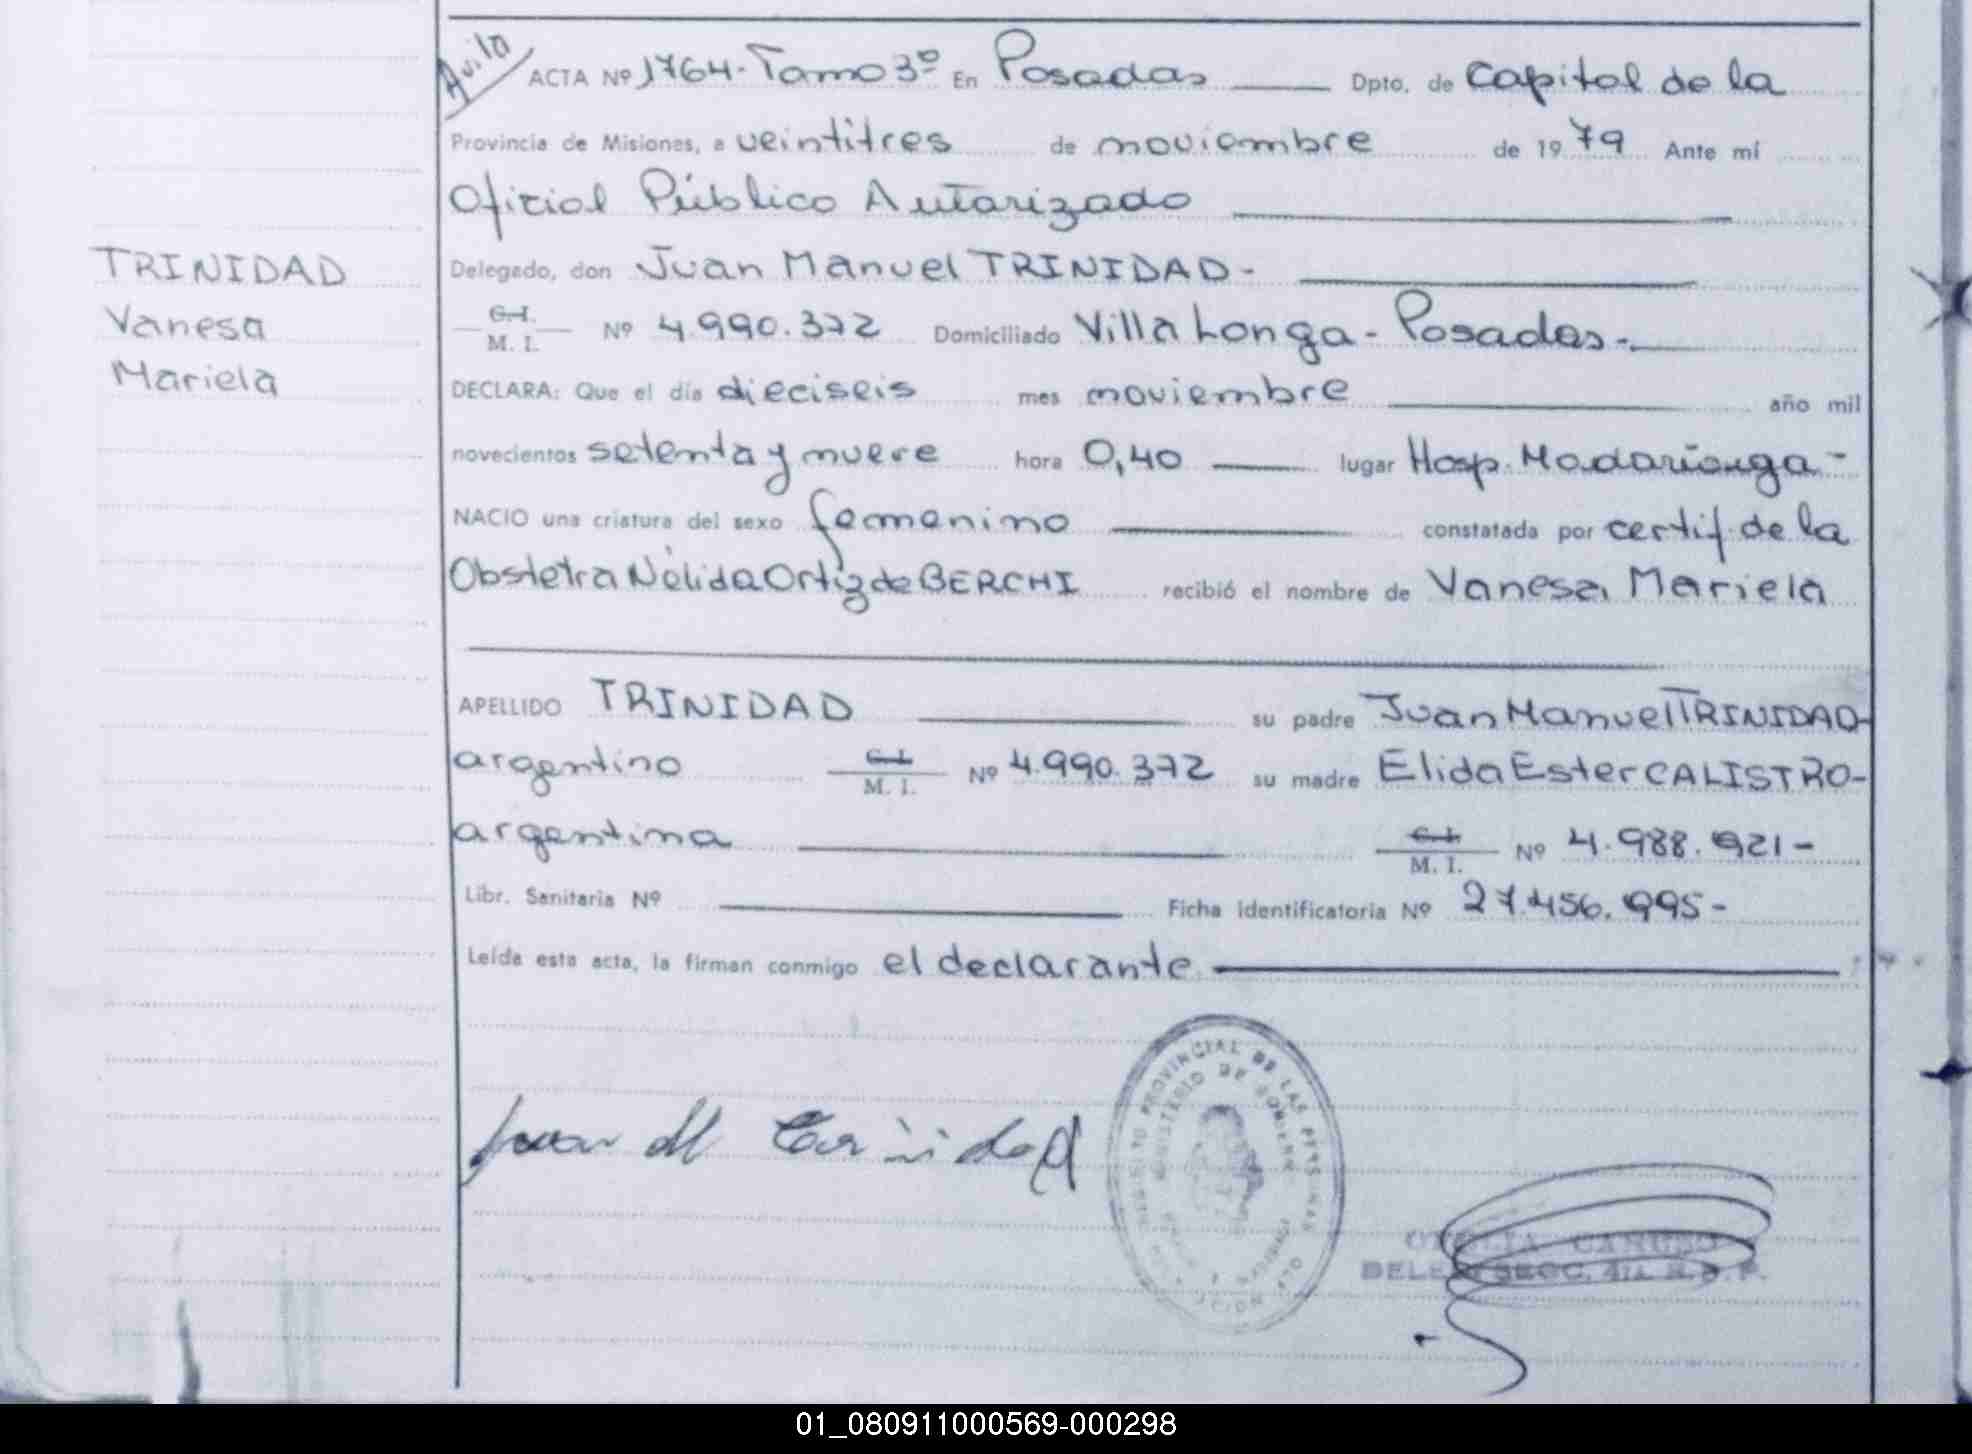 Avila
ACTA Nº 1764-Tomo 3º En Posadas Dpto. de Capital de la
Provincia de Misiones, a veintitres de noviembre de 1979 Ante mí
Oficial Público Autorizado
Delegado, don Juan Manuel TRINIDAD-
C.I.
M. I. Nº 4.990.372 Domiciliado Villa Longa - Posadas-
DECLARA: Que el día dieciseis mes noviembre año mil
novecientos setenta y nueve hora 0,40 lugar Hosp. Madariaga-
NACIO una criatura del sexo femenino constatada por certif. de la
Obstetra Nélida Ortiz de BERCHI recibió el nombre de Vanesa Mariela
TRINIDAD
Vanesa
Mariela
APELLIDO TRINIDAD su padre Juan Manuel TRINIDAD-
argentino C.I.
M. I. Nº 4.990.372 su madre Elida Ester CALISTRO-
argentina C.I.
M. I. Nº 4.988.921-
Libr. Sanitaria Nº Ficha identificatoria Nº 27.456.995-
Leída esta acta, la firman conmigo el declarante
Juan M Trinidad
REGISTRO PROVINCIAL DE LAS PERSONAS
MINISTERIO DE GOBIERNO
01_080911000569-000298